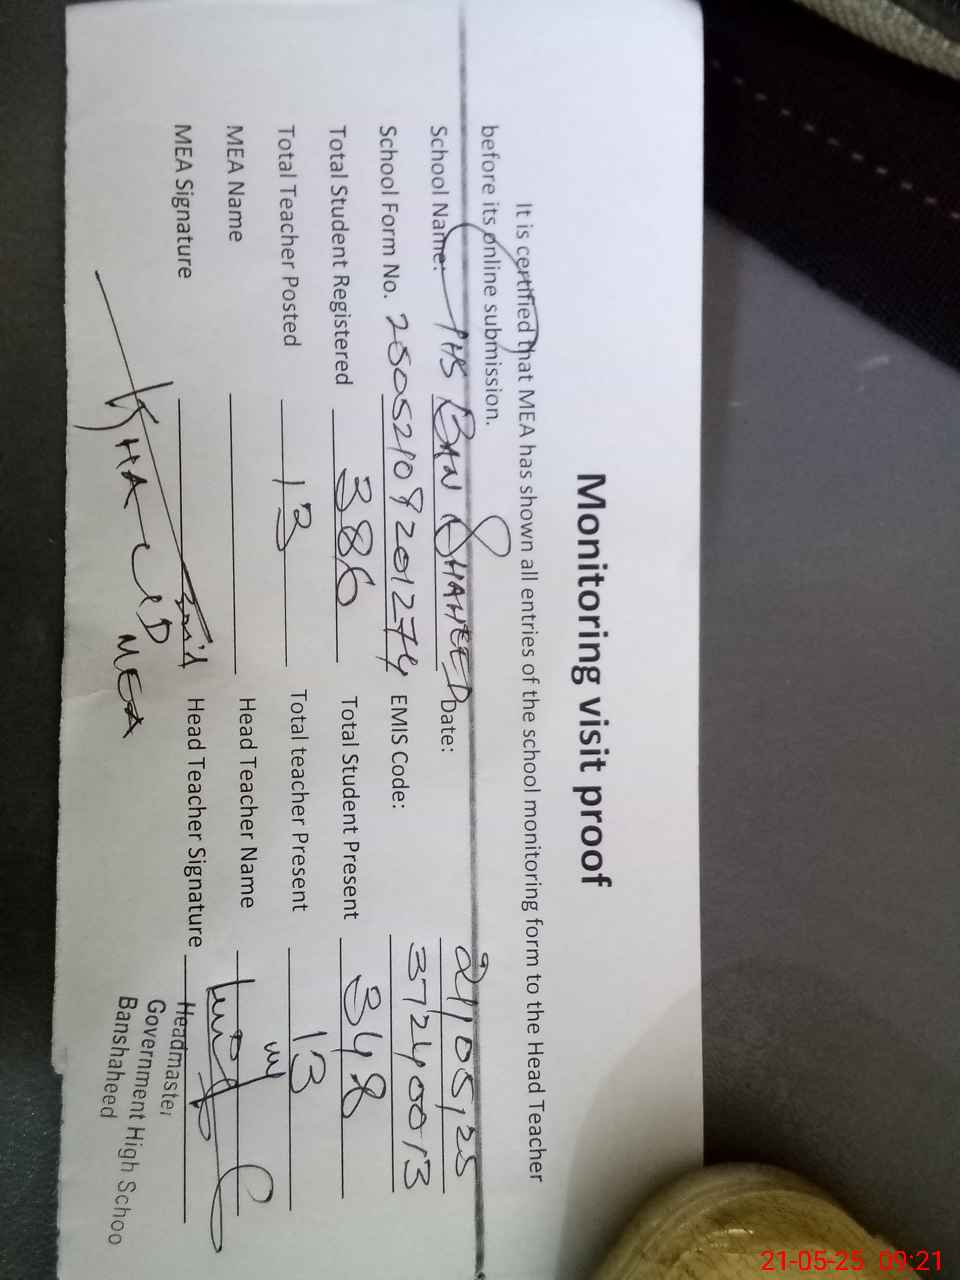 Monitoring visit proof
It is certified that MEA has shown all entries of the school monitoring form to the Head Teacher
before its online submission.
School Name: GHS BAN SHAHEED Date: 21/05/25
School Form No. 25052108201274 EMIS Code: 37240013
Total Student Registered 386 Total Student Present 348
Total Teacher Posted 13 Total teacher Present 13
MEA Name Head Teacher Name
MEA Signature Head Teacher Signature
KHALID
MEA
Headmaster
Government High Schoo
Banshaheed
21-05-25 09:21